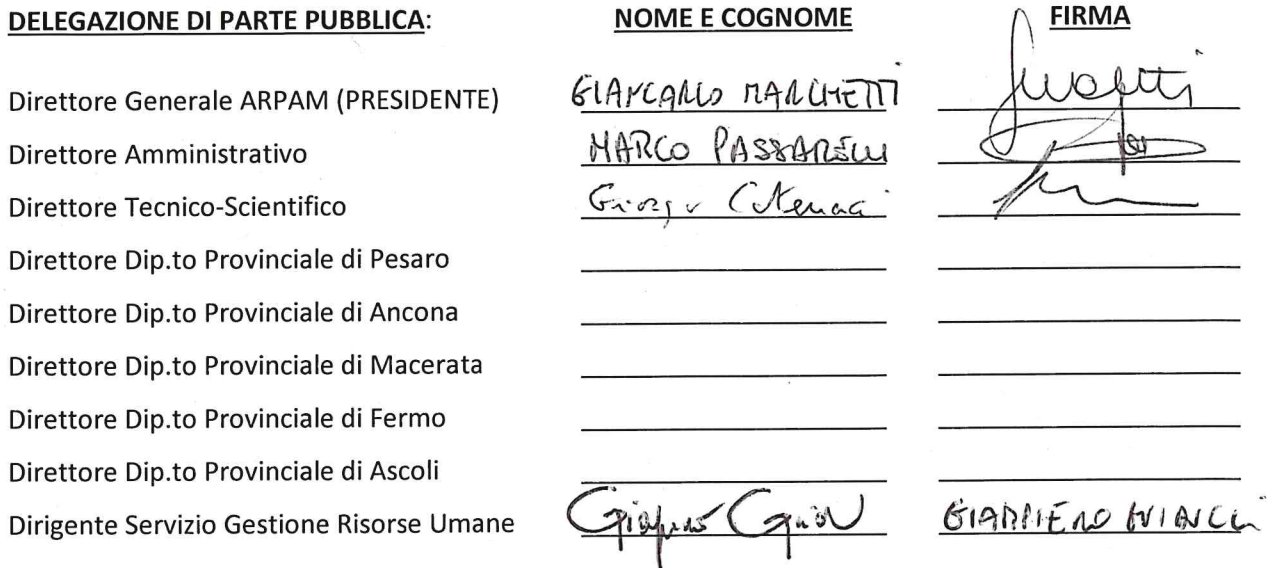 DELEGAZIONE DI PARTE PUBBLICA: NOME E COGNOME FIRMA
Direttore Generale ARPAM (PRESIDENTE) GIANCARLO MARCHETTI
Direttore Amministrativo MARCO PASSARELLI
Direttore Tecnico-Scientifico Giorgio Catenacci
Direttore Dip.to Provinciale di Pesaro
Direttore Dip.to Provinciale di Ancona
Direttore Dip.to Provinciale di Macerata
Direttore Dip.to Provinciale di Fermo
Direttore Dip.to Provinciale di Ascoli
Dirigente Servizio Gestione Risorse Umane GIAMPIERO